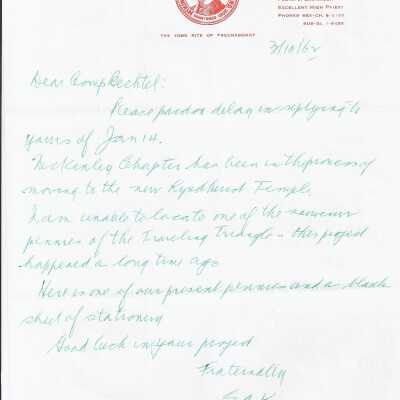 EXCELLENT HIGH PRIEST
THE YORK RITE OF FREEMASONRY
3/10/62
Dear Comp Bechtel:
Please pardon delay in replying to
yours of Jan 14.
McKinley Chapter has been in the process of
moving to the new Lyndhurst Temple.
I am unable to locate one of the
pennies of the Traveling Triangle - this project
happened a long time ago
Here is one of our present pennies and a blank
sheet of stationery
Good luck in your project
Fraternally